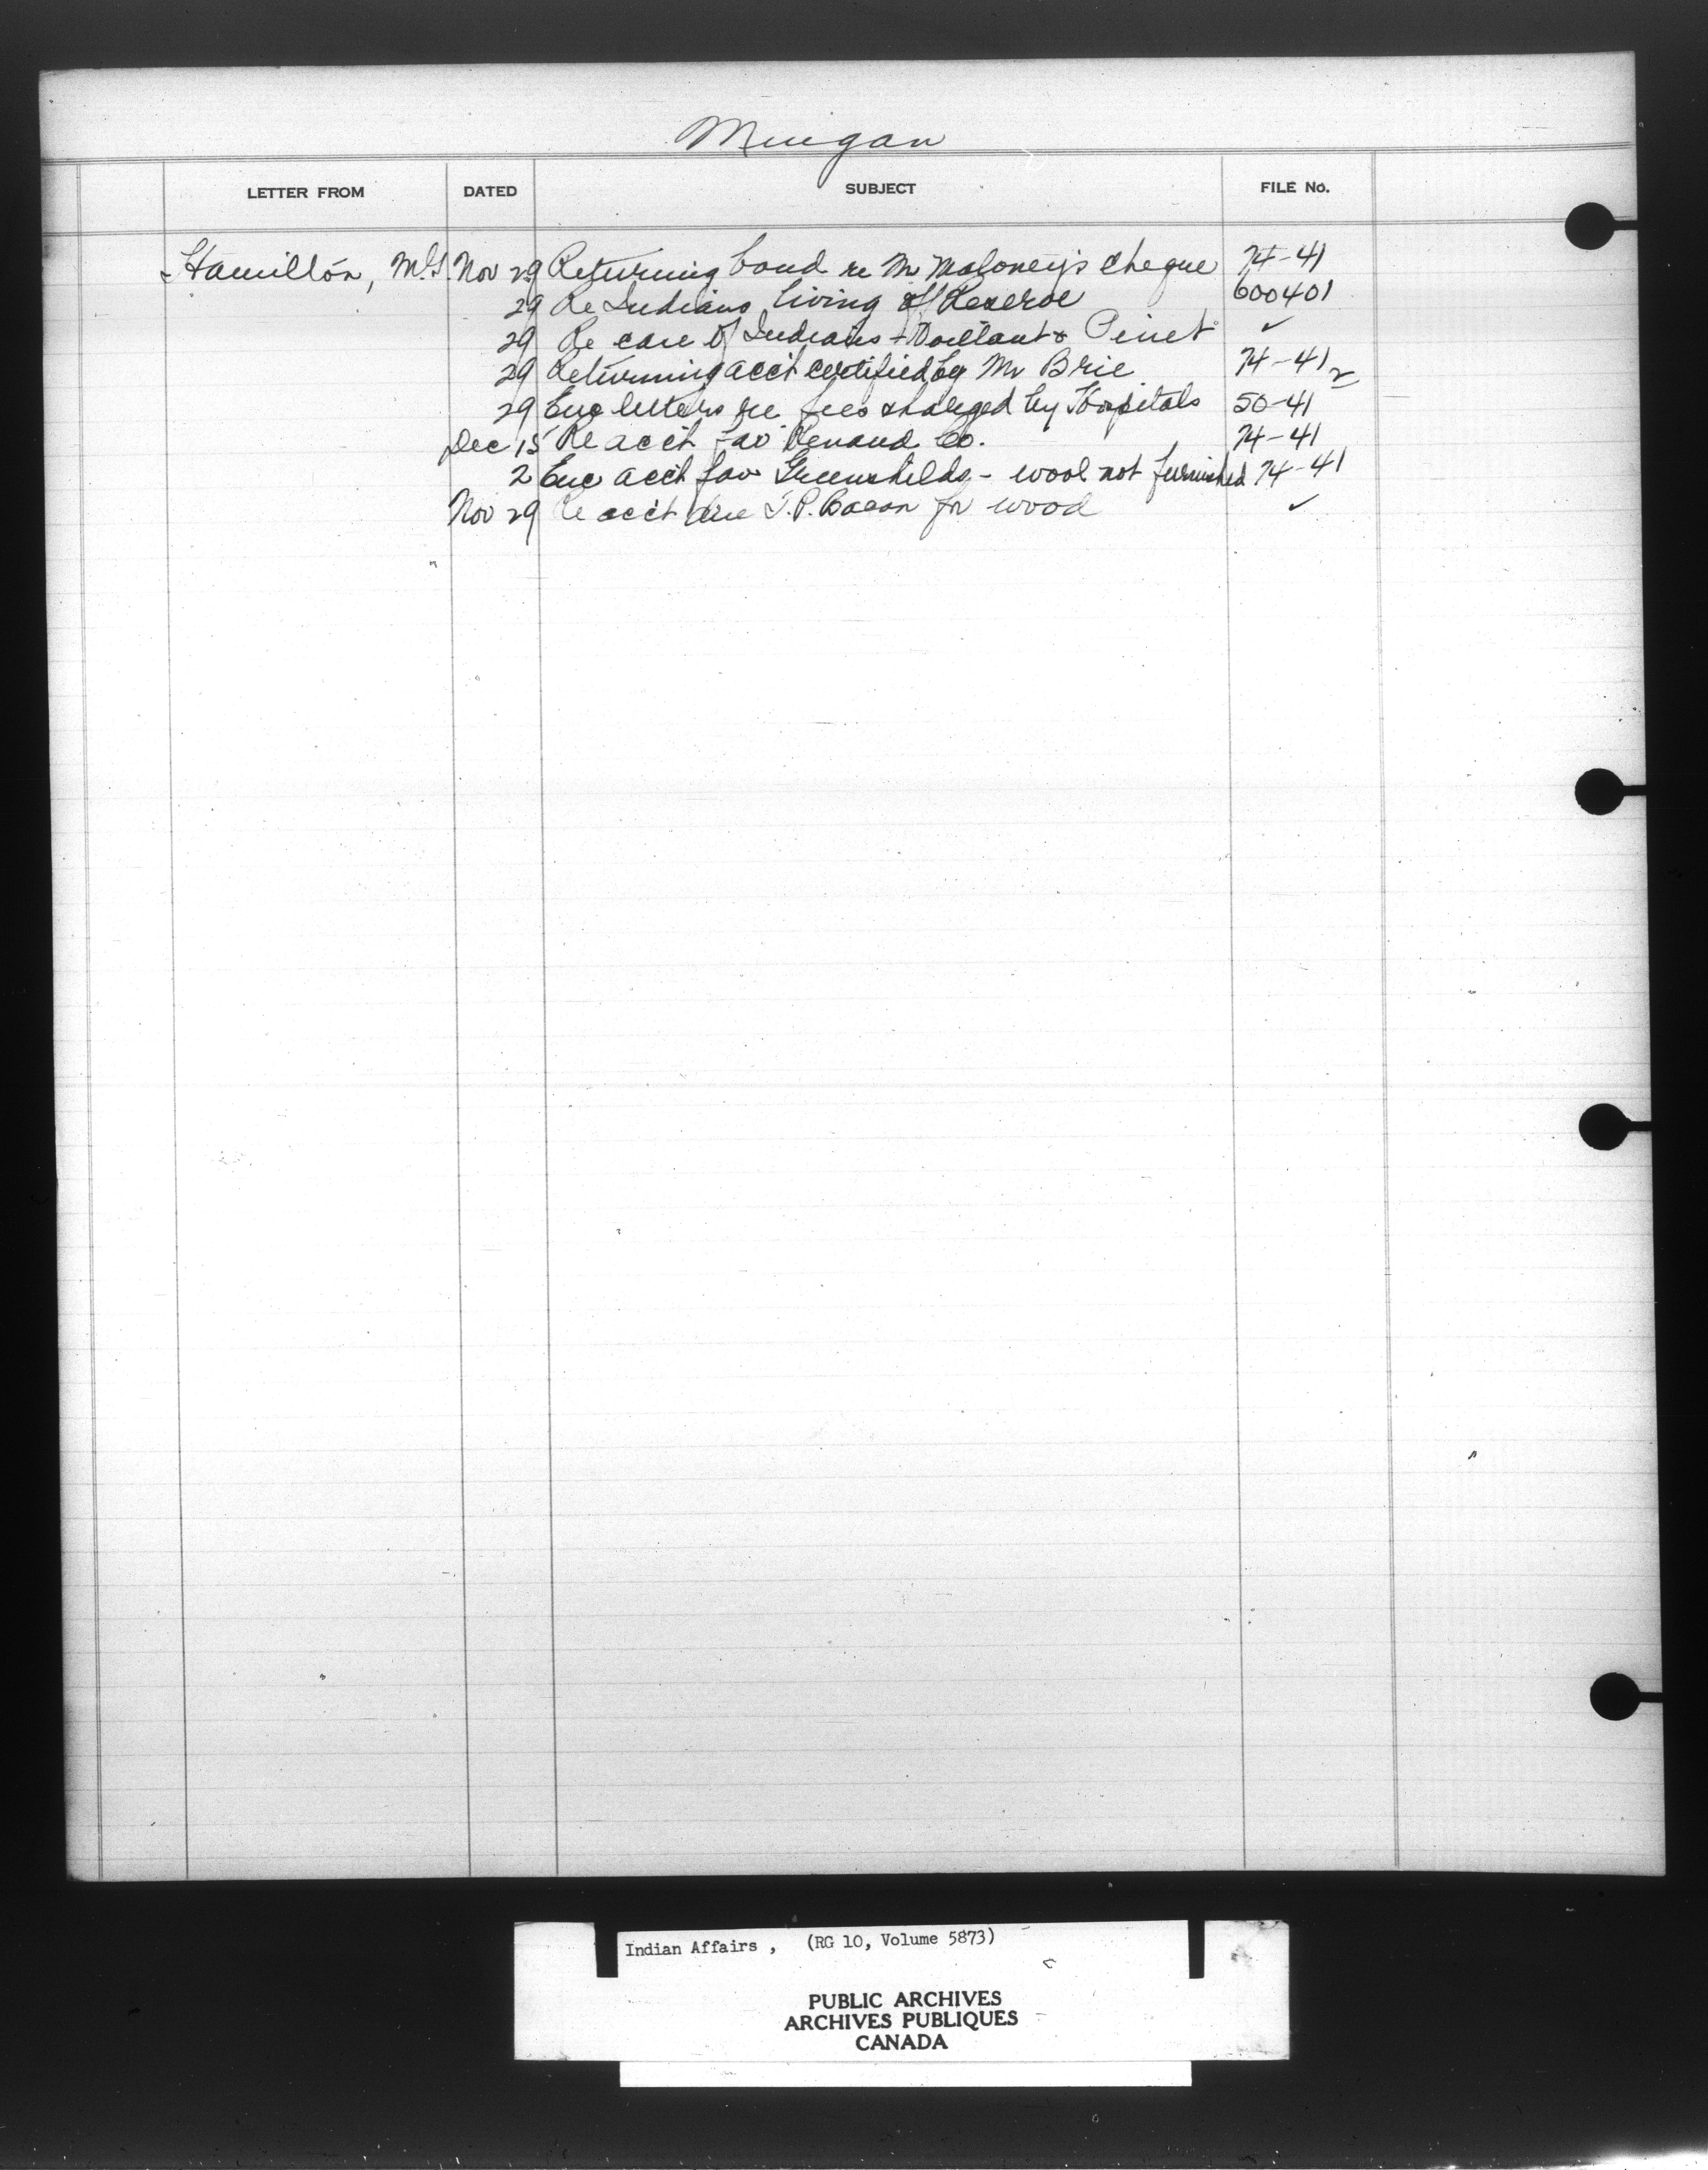 Mingan
LETTER FROM DATED SUBJECT FILE No.
Hamilton, Nov 29 Returning bond re Mr Maloney's cheque 74-41
29 Re Indians living off Reserve 600401
29 Re care of Indians - Vaillant & Pinet ✓
29 Returning acct certified by Mr Brie 74-41
29 Enc letters re fees charged by Hospitals 50-41
Dec 15 Re acct fav Renaud Co. 74-41
2 Enc acct fav Greenshields - wool not furnished 74-41
Nov 29 Re acct due J.P. Bacon for wood ✓
Indian Affairs , (RG 10, Volume 5873)
PUBLIC ARCHIVES
ARCHIVES PUBLIQUES
CANADA